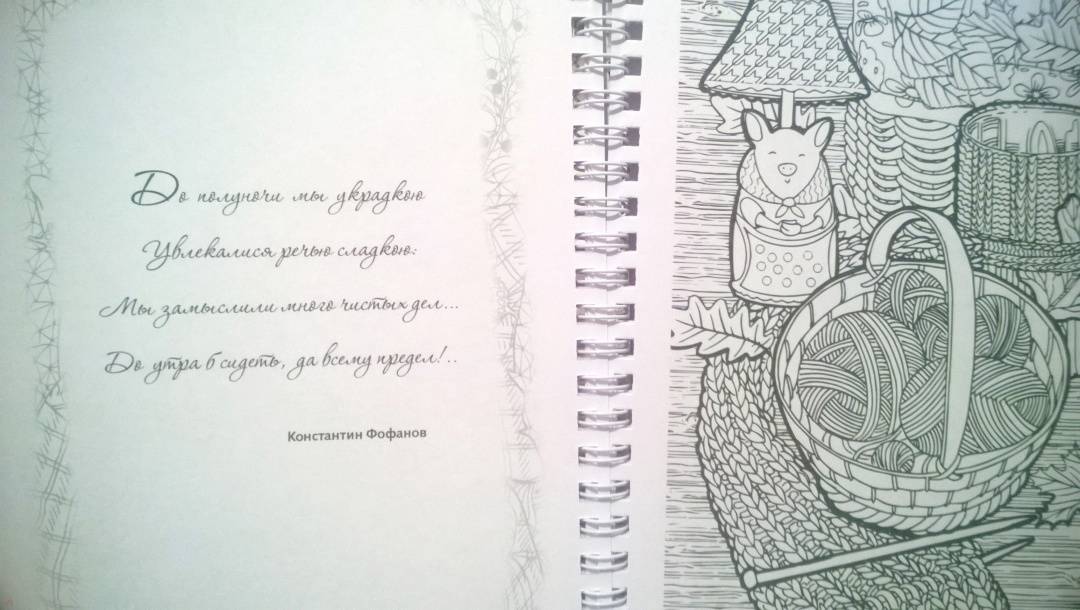 До полуночи мы украдкою
Увлекалися речью сладкою:
Мы замыслили много чистых дел...
До утра б сидеть, да всему предел!..
Константин Фофанов